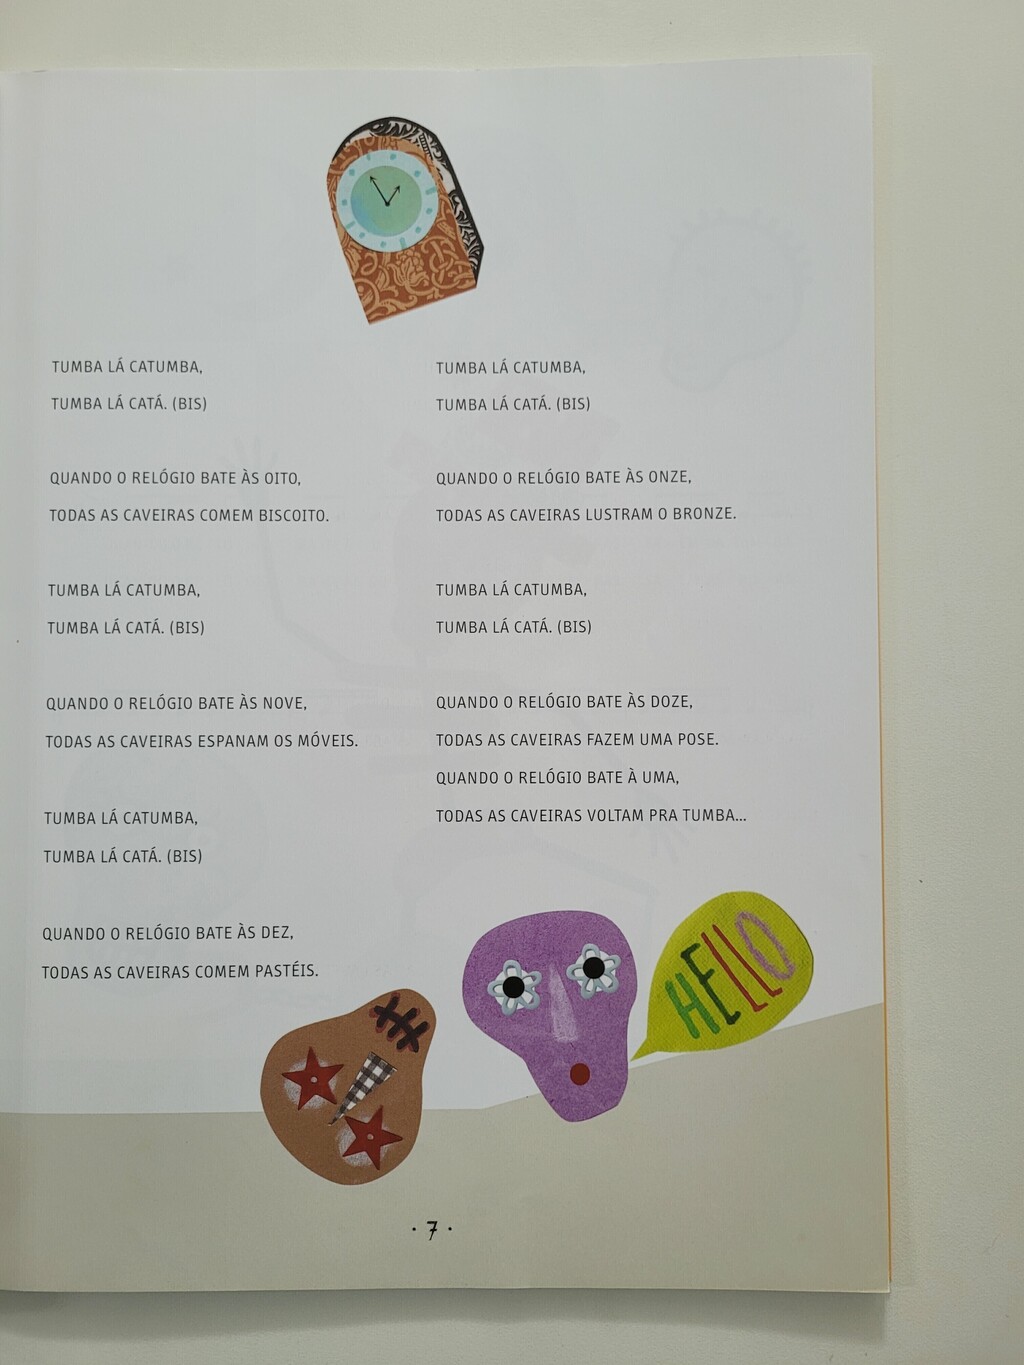 TUMBA LÁ CATUMBA,
TUMBA LÁ CATÁ. (BIS)
QUANDO O RELÓGIO BATE ÀS OITO,
TODAS AS CAVEIRAS COMEM BISCOITO.
TUMBA LÁ CATUMBA,
TUMBA LÁ CATÁ. (BIS)
QUANDO O RELÓGIO BATE ÀS NOVE,
TODAS AS CAVEIRAS ESPANAM OS MÓVEIS.
TUMBA LÁ CATUMBA,
TUMBA LÁ CATÁ. (BIS)
QUANDO O RELÓGIO BATE ÀS DEZ,
TODAS AS CAVEIRAS COMEM PASTÉIS.
TUMBA LÁ CATUMBA,
TUMBA LÁ CATÁ. (BIS)
QUANDO O RELÓGIO BATE ÀS ONZE,
TODAS AS CAVEIRAS LUSTRAM O BRONZE.
TUMBA LÁ CATUMBA,
TUMBA LÁ CATÁ. (BIS)
QUANDO O RELÓGIO BATE ÀS DOZE,
TODAS AS CAVEIRAS FAZEM UMA POSE.
QUANDO O RELÓGIO BATE À UMA,
TODAS AS CAVEIRAS VOLTAM PRA TUMBA...
HELLO
· 7 ·